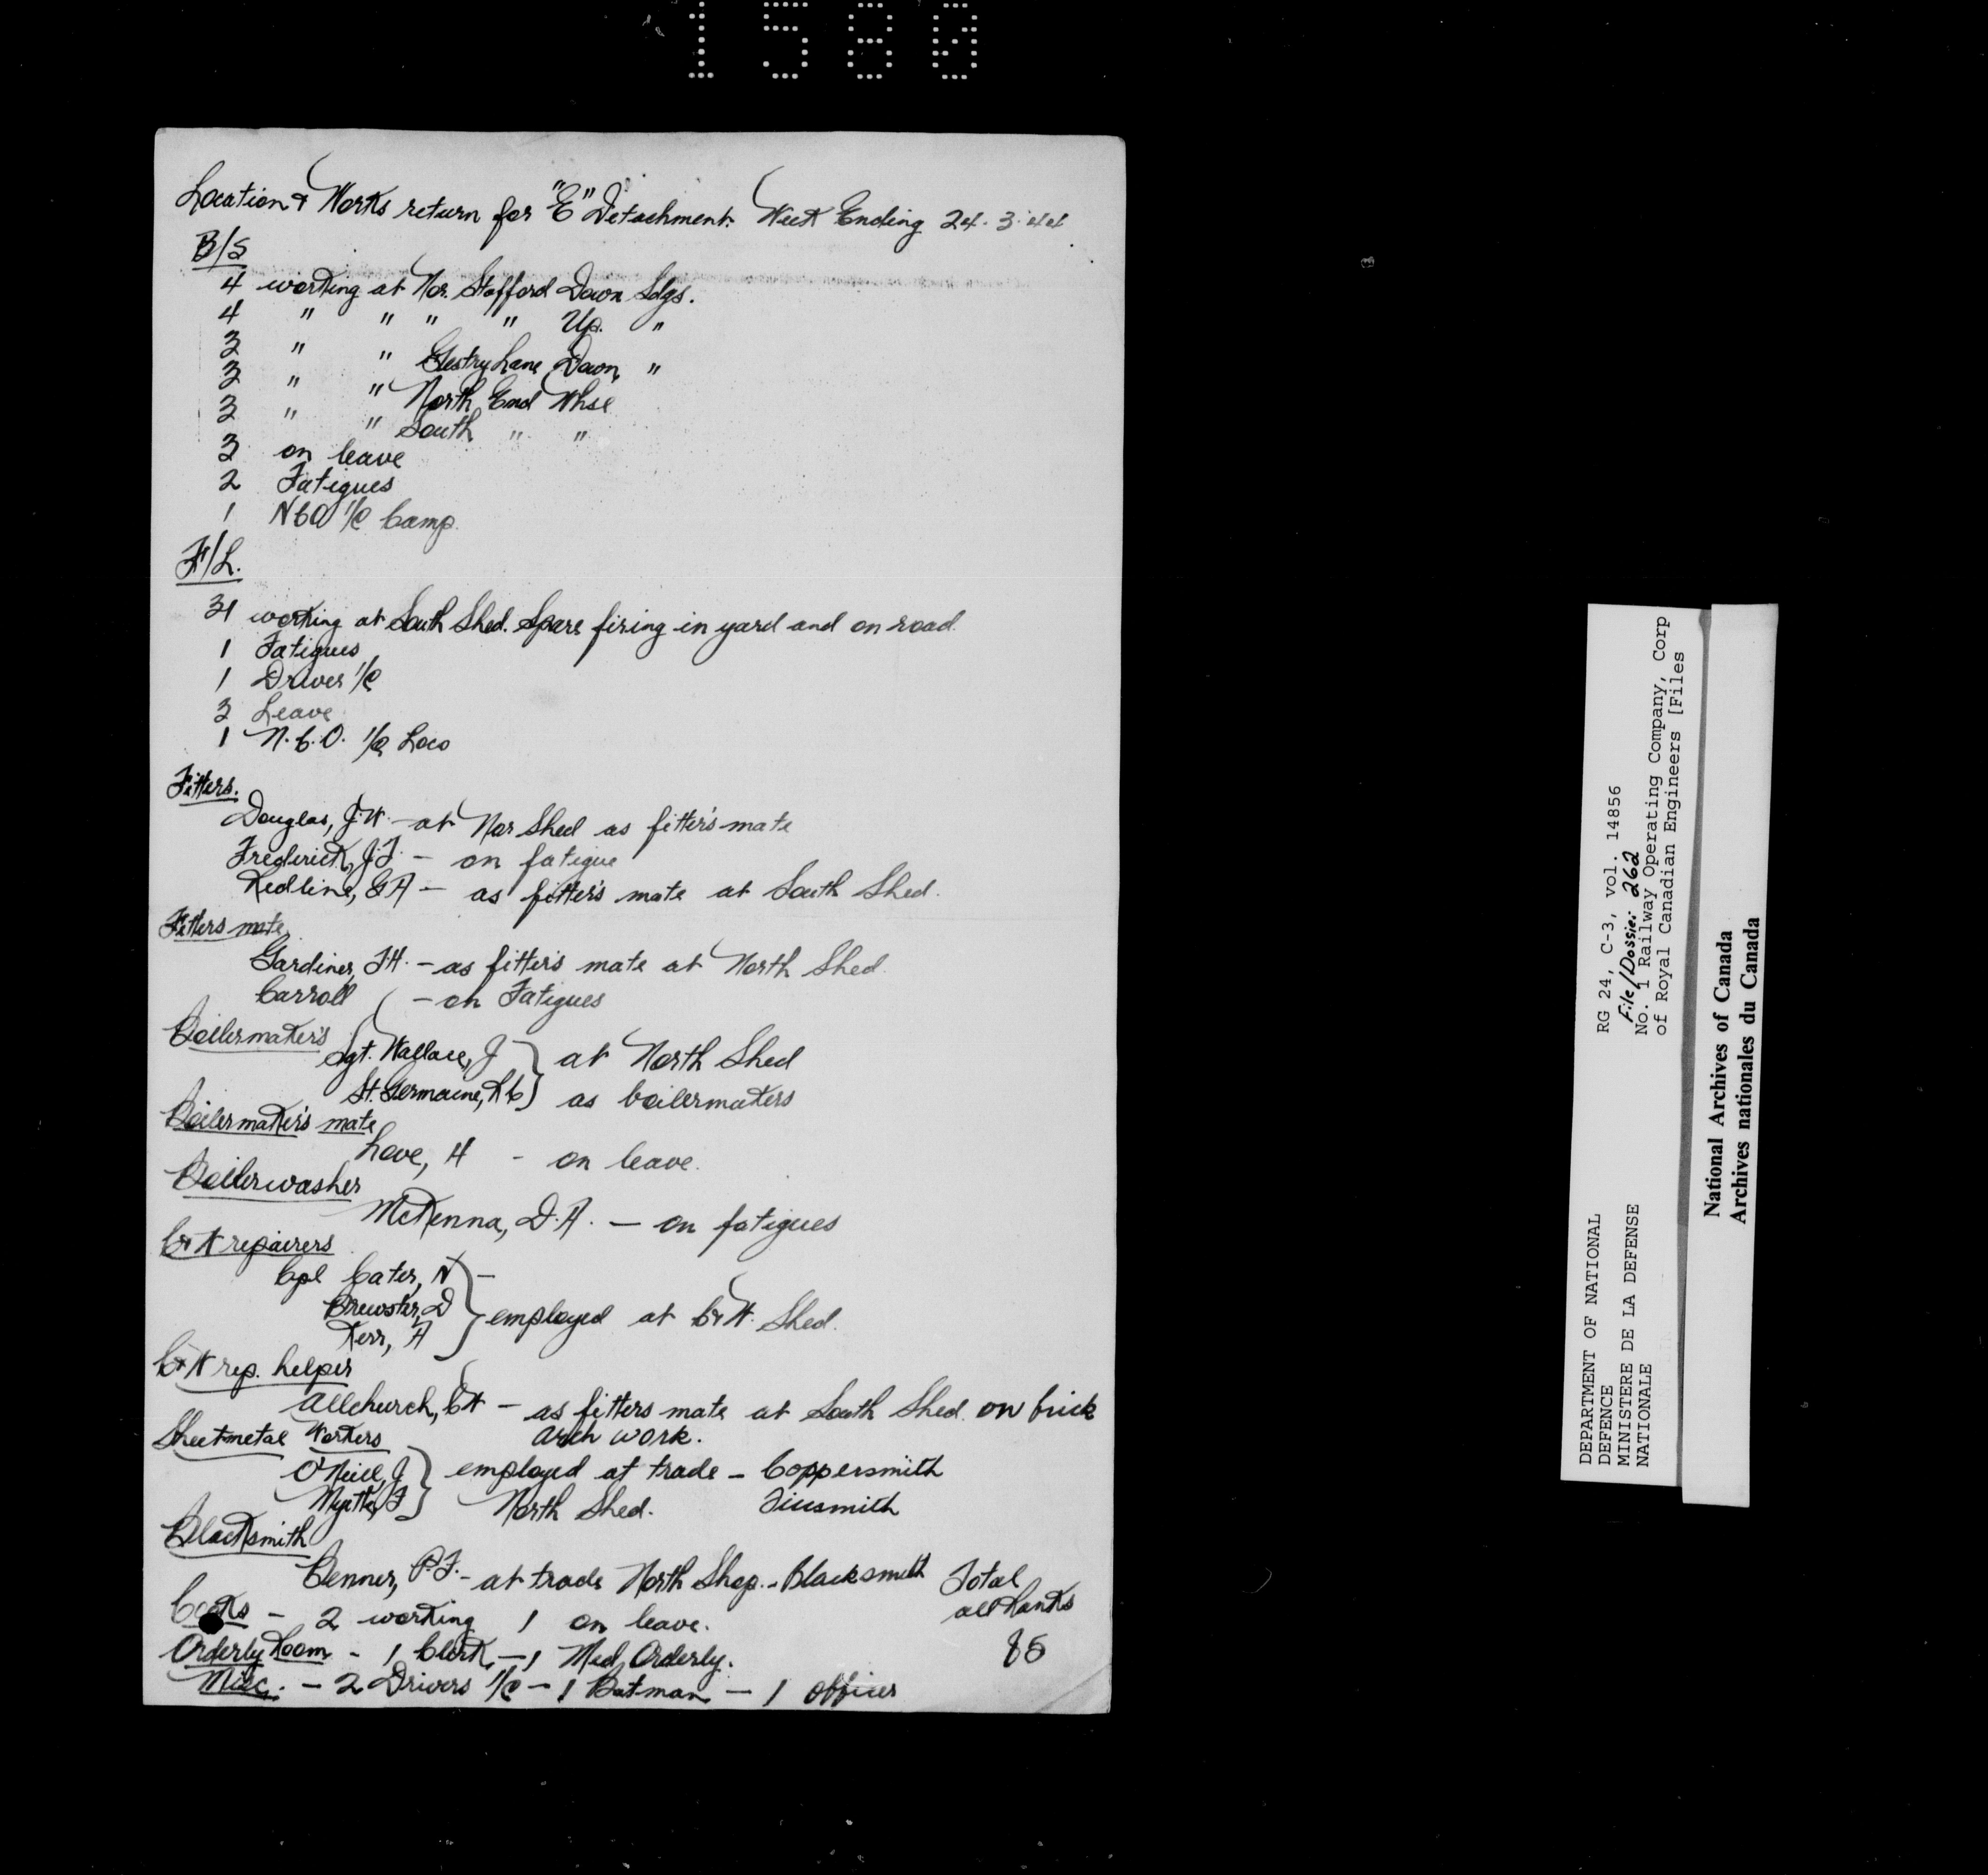 1580
Location & Works return for "E" Detachment. Week Ending 24.3.44
B/S
4 working at Nor. Stafford Down Sdgs.
4 " " " " Up. "
3 " " Gestry Lane Down "
3 " " North End Whse
3 " " South " "
3 on leave
2 Fatigues
1 NCO i/c Camp.
F/L.
31 working at South Shed. Spare firing in yard and on road.
1 Fatigues
1 Driver i/c
3 Leave
1 N.C.O. i/c Loco
Fitters.
Douglas, J.W. - at Nor Shed as fitter's mate
Frederick, J.F. - on fatigue
Redline, G A - as fitter's mate at South Shed.
Fitters mate
Gardiner, F.H. - as fitter's mate at North Shed.
Carroll - on Fatigues
Boilermaker's
Sgt. Wallace, J } at North Shed
St. Germaine, R C } as boilermakers
Boilermaker's mate
Love, H - on leave.
Boilerwasher
McKenna, D.A. - on fatigues
C & W repairers
Cpl Cater, N } -
Brewster, D } employed at C & W. Shed.
Kerr, A }
C & W rep. helper
Allchurch, C H - as fitters mate at South Shed. on brick
arch work.
Sheetmetal Workers
O'Neill, J } employed at trade - Coppersmith
Myatt, F } North Shed. Tinsmith
Blacksmith
Benner, P.F. - at trade North Shop. - Blacksmith Total
all Ranks
Cooks - 2 working 1 on leave.
Orderly Room - 1 Clerk, - 1 Med. Orderly. 85
Misc. - 2 Drivers i/c - 1 Batman - 1 Officer
DEPARTMENT OF NATIONAL
DEFENCE
MINISTERE DE LA DEFENSE
NATIONALE
RG 24, C-3, vol. 14856
File/Dossier 262
No. 1 Railway Operating Company, Corp
of Royal Canadian Engineers [Files
National Archives of Canada
Archives nationales du Canada